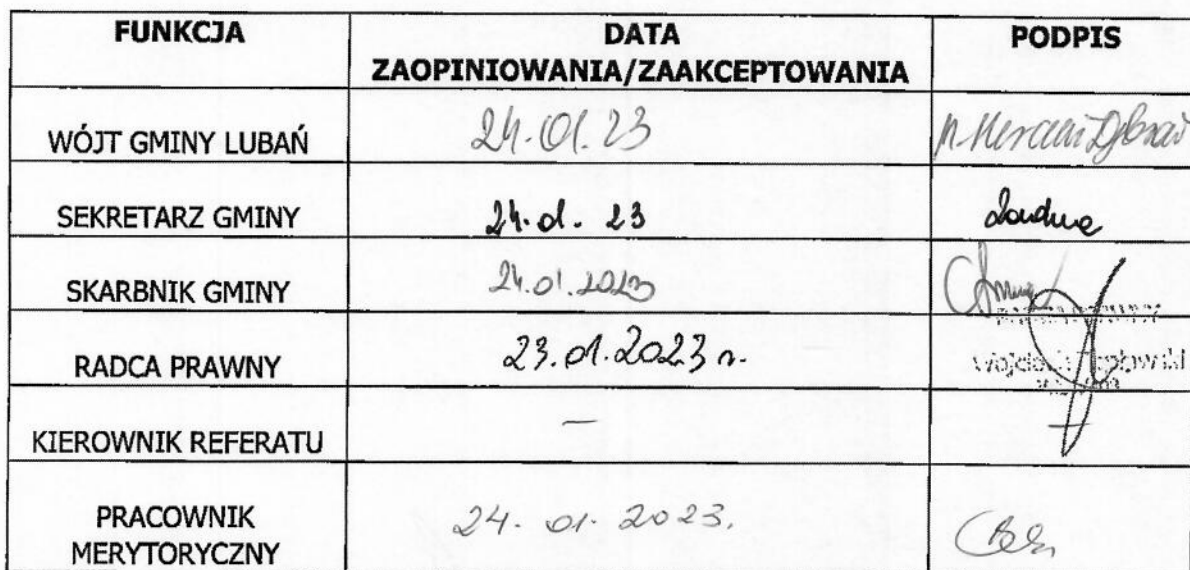 FUNKCJA DATA PODPIS
ZAOPINIOWANIA/ZAAKCEPTOWANIA
WÓJT GMINY LUBAŃ 24.01.23
SEKRETARZ GMINY 24.01.23
SKARBNIK GMINY 24.01.2023
RADCA PRAWNY 23.01.2023 r.
KIEROWNIK REFERATU — —
PRACOWNIK 24.01.2023.
MERYTORYCZNY